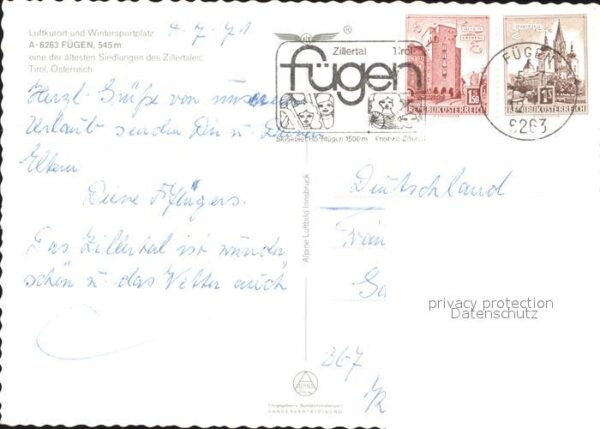 Luftkurort und Wintersportplatz
A-6263 FÜGEN, 545 m
eine der ältesten Siedlungen des Zillertales
Tirol, Österreich
4.7.71
Herzl. Grüße von unserem
Urlaub senden Dir u. Deinen
Eltern
Deine
Das Zillertal ist wunder
schön u. das Wetter auch
Zillertal Tirol
fügen
1500 m
REPUBLIK ÖSTERREICH
REPUBLIK ÖSTERREICH
FÜGEN
6263
Alpine Luftbild Innsbruck
Deutschland
privacy protection
Datenschutz